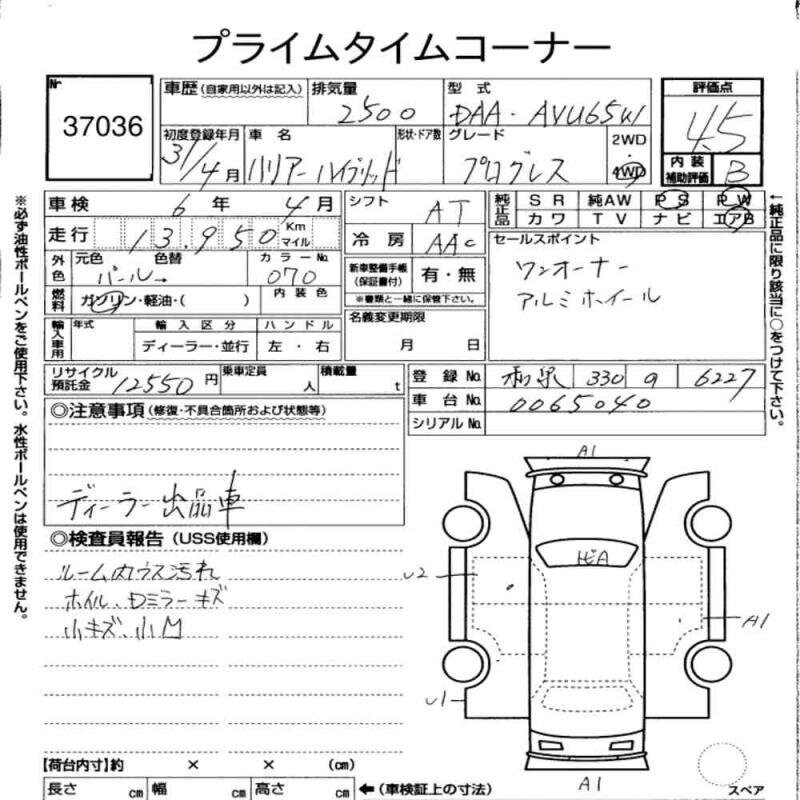 プライムタイムコーナー
Nr 37036
車歴 (自家用以外は記入) 排気量 2500 型式 DAA・AVU65W 評価点 4.5
初度登録年月 31/4月 車名 ハリアーハイブリッド 形状・ドア数 グレード プログレス 2WD・4WD 内装補助評価 B
車検 6年 4月 シフト AT 純正品 SR 純AW PS PW
カワ TV ナビ エアB
走行 13,950 Km マイル 冷房 AAC セールスポイント
外色 元色 パール 色替 → カラーNo 070 新車整備手帳(保証書付) 有・無 ワンオーナー
※書類と一緒に保管下さい。 アルミホイール
燃料 ガソリン・軽油・( ) 内装色
輸入車用 年式 輸入区分 ハンドル 名義変更期限
ディーラー・並行 左・右 月 日
リサイクル預託金 12550円 乗車定員 人 積載量 t 登録No. 和泉 330 9 6227
車台No. 0065040
シリアルNo.
◎注意事項(修復・不具合箇所および状態等)
ディーラー出品車
◎検査員報告(USS使用欄)
ルーム内ウス汚れ
ホイル、Dミラーキズ
小キズ、小凹
A1
ヒビA
U2
A1
U1
A1
スペア
【荷台内寸】約 × × (cm)
長さ cm 幅 cm 高さ cm ←(車検証上の寸法)
※必ず油性ボールペンをご使用下さい。水性ボールペンは使用できません。
←純正品に限り該当に○をつけて下さい。